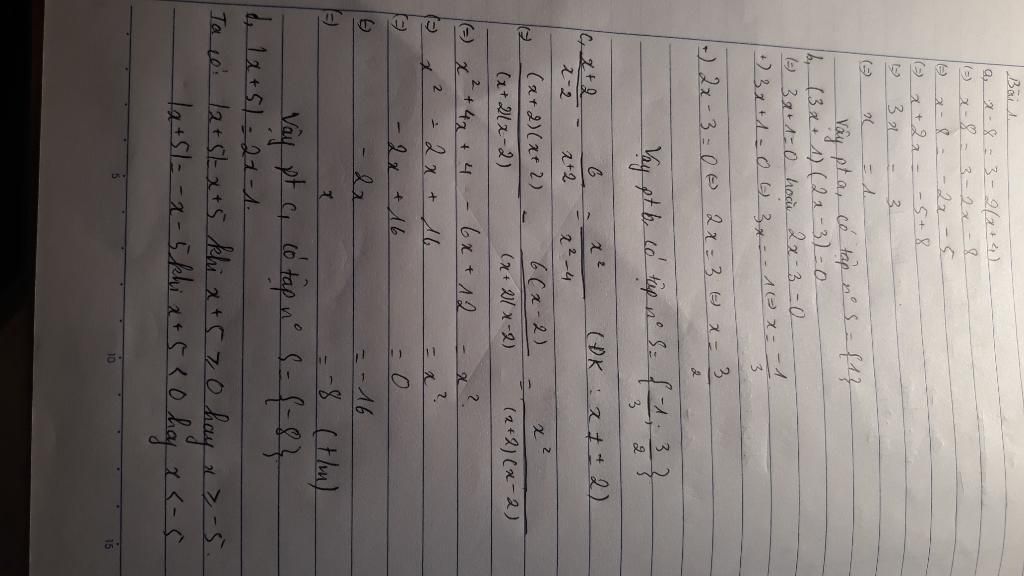 Bài 1.
a, x - 8 = 3 - 2(x+4)
(=) x - 8 = 3 - 2x - 8
(=) x - 8 = - 2x - 5
(=) x + 2x = -5 + 8
(=) 3x = 3
(=) x = 1
Vậy pt a, có tập n° S = {1}
b, (3x + 1)(2x - 3) = 0
(=) 3x + 1 = 0 hoặc 2x - 3 = 0
+) 3x + 1 = 0 (=) 3x = -1 (=) x = -1/3
+) 2x - 3 = 0 (=) 2x = 3 (=) x = 3/2
Vậy pt b, có tập n° S = {-1/3; 3/2}
c, x+2/x-2 - 6/x+2 = x²/x²-4 (ĐK: x ≠ ± 2)
(=) (x+2)(x+2)/(x+2)(x-2) - 6(x-2)/(x+2)(x-2) = x²/(x+2)(x-2)
(=) x² + 4x + 4 - 6x + 12 = x²
(=) x² - 2x + 16 = x²
(=) - 2x + 16 = 0
(=) - 2x = -16
(=) x = -8 (tm)
Vậy pt c, có tập n° S = {-8}
d, |x+5| = 2x - 1.
Ta có: |x+5| = x+5 khi x + 5 ≥ 0 hay x ≥ -5.
|x+5| = -x - 5 khi x + 5 < 0 hay x < -5
5
10
15